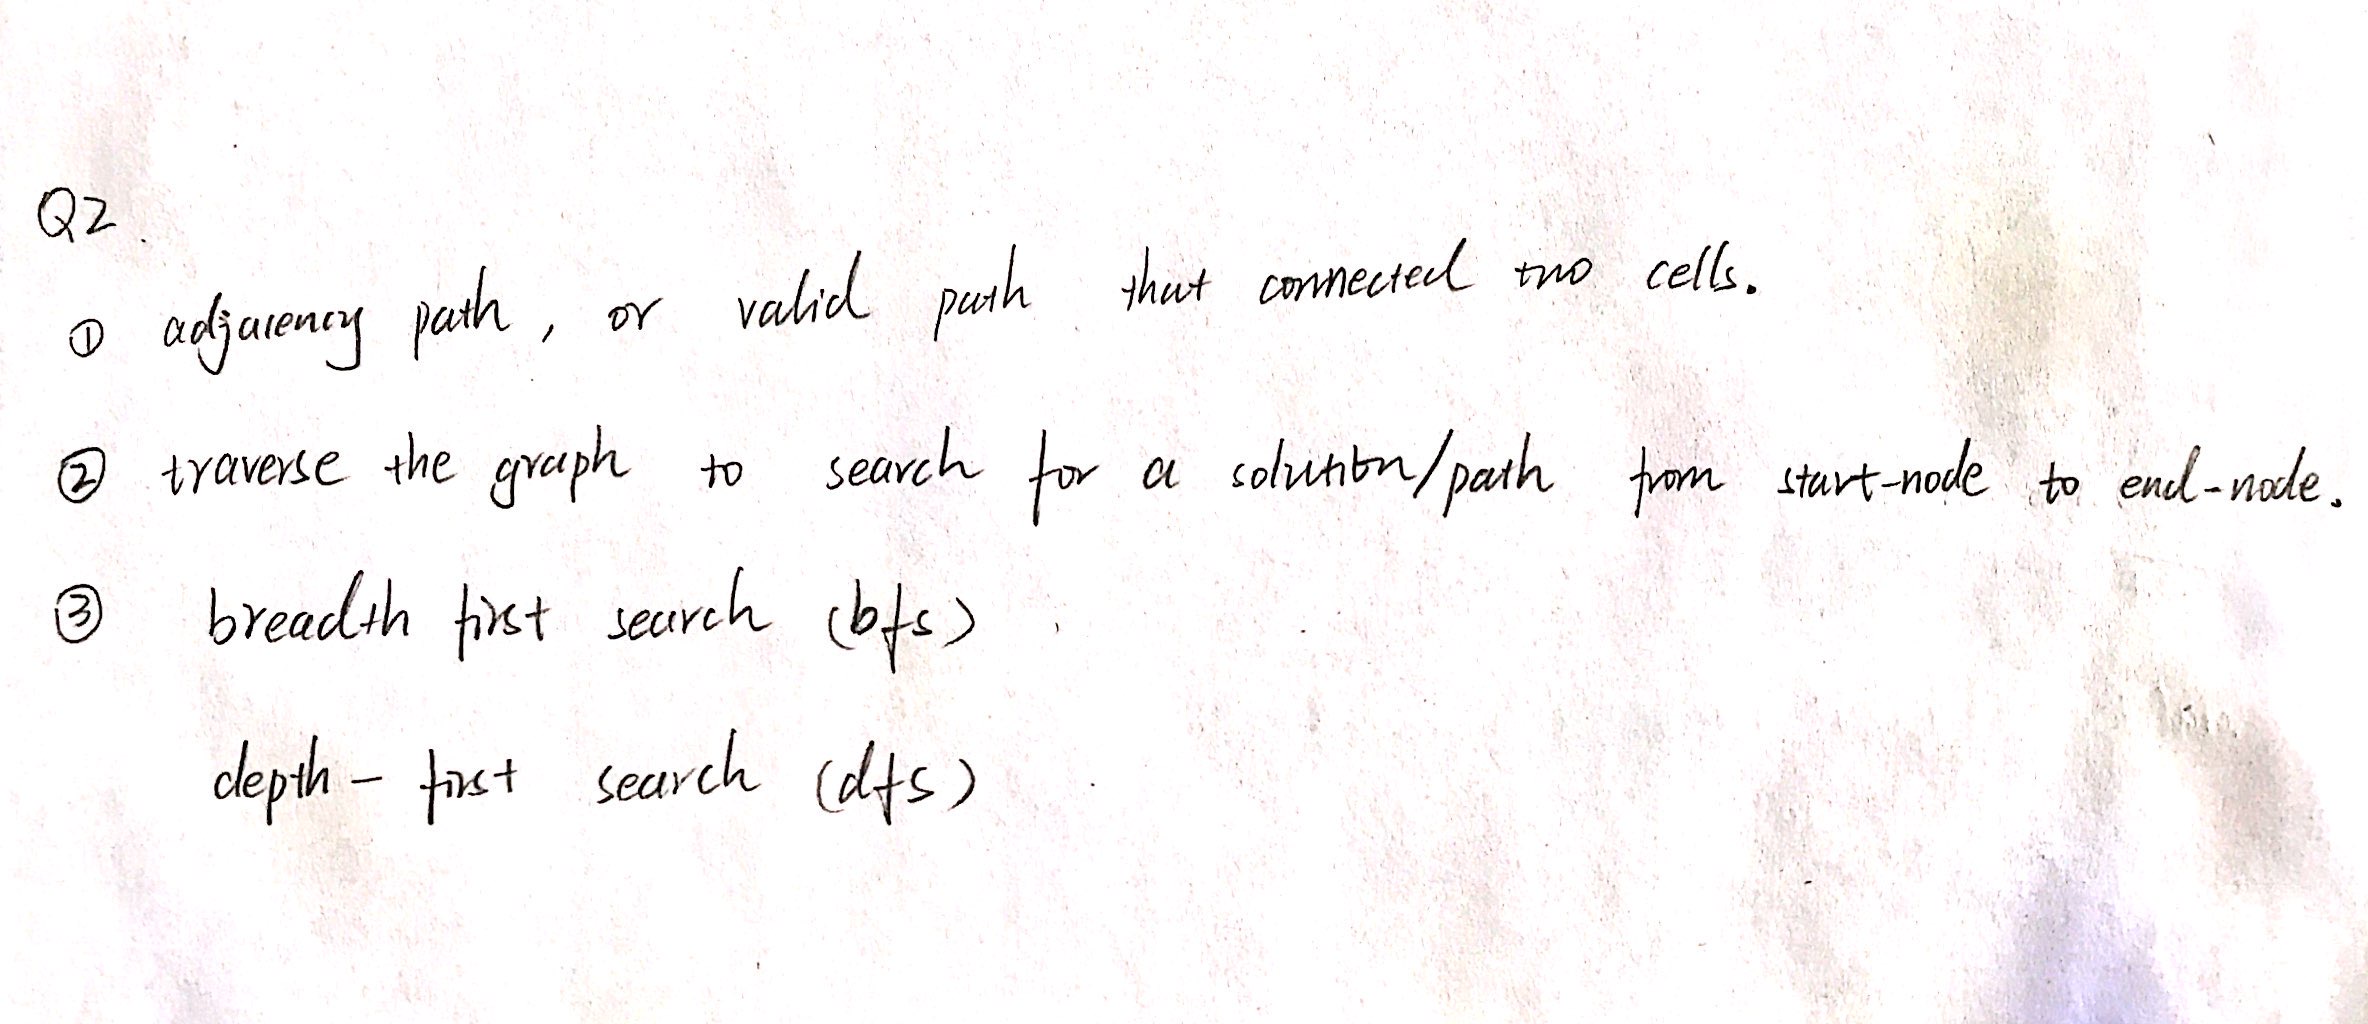 Q2.
① adjacency path, or valid path that connected two cells.
② traverse the graph to search for a solution/path from start-node to end-node.
③ breadth first search (bfs)
depth-first search (dfs)